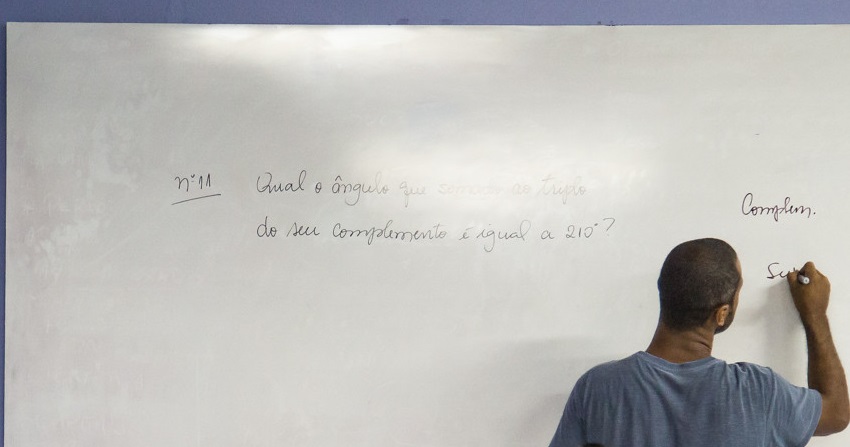 nº 11 Qual o ângulo que somado ao triplo
do seu complemento é igual a 210°?
Complem.
Su